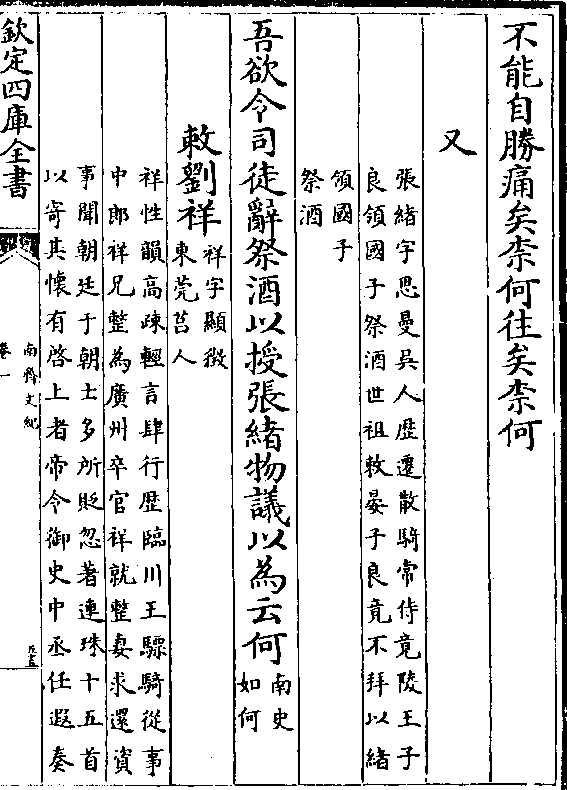 不能自勝痛矣柰何往矣柰何
又
張緒字思曼吳人歴遷散騎常侍竟陵王子
良領國子祭酒世祖敕晏子良竟不拜以緒
領國子
祭酒
吾欲令司徒辭祭酒以授張緒物議以為云何
南史
如何
敕劉祥
祥字顯徵
東莞莒人
祥性韻高疎輕言肆行歴臨川王驃騎從事
中郎祥兄整為廣州卒官祥就整妻求還資
事聞朝廷于朝士多所貶忽著連珠十五首
以寄其懐有啓上者帝令御史中丞任遐奏
欽定四庫全書
南齊文紀
卷一